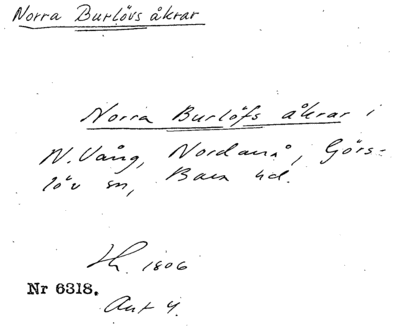 Norra Burlövs åkrar
Norra Burlöfs åkrar i
N. Vång, Nordanå, Görs-
löv sn, Bara hd.
Lh. 1806
Nr 6318.
Akt 4.